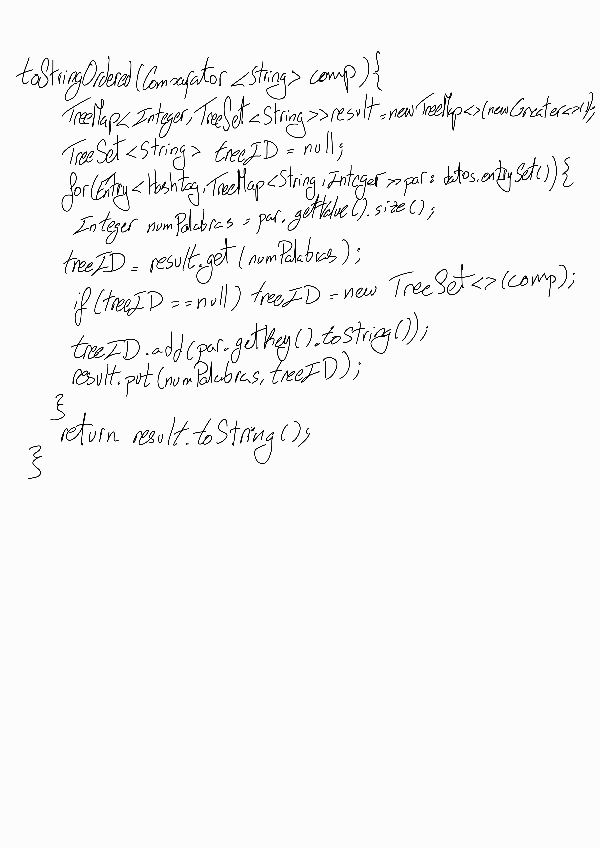 toStringOrdered(Comparator <String> comp){
TreeMap<Integer, TreeSet<String>>result = new TreeMap<>(new Greater<>());
TreeSet<String> treeID = null;
for(Entry<Hashtag, TreeMap<String, Integer>>par: datos.entrySet()){
Integer numPalabras = par.getValue().size();
treeID = result.get(numPalabras);
if(treeID == null) treeID = new TreeSet<>(comp);
treeID.add(par.getKey().toString());
result.put(numPalabras, treeID);
}
return result.toString();
}